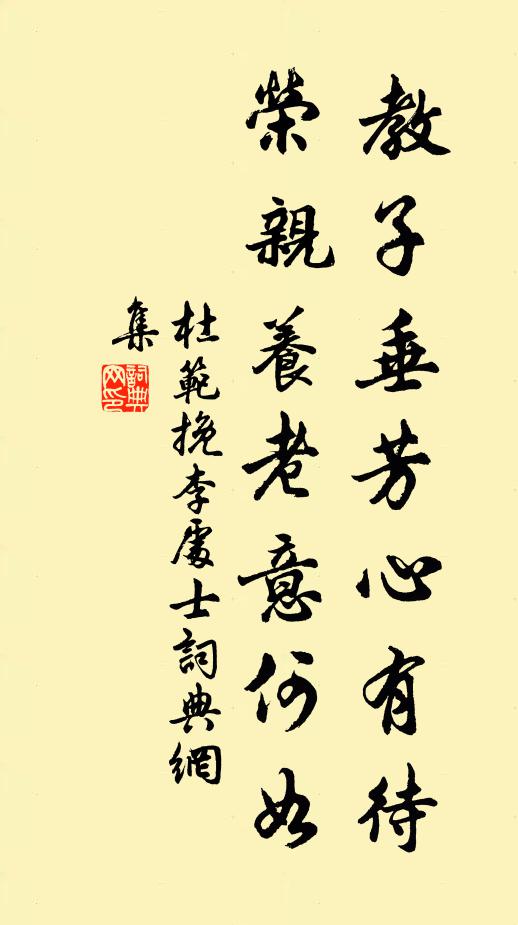 教子垂芳心有待
榮親養老意何如
杜範挽李處士詞典網
集
詞典
网印